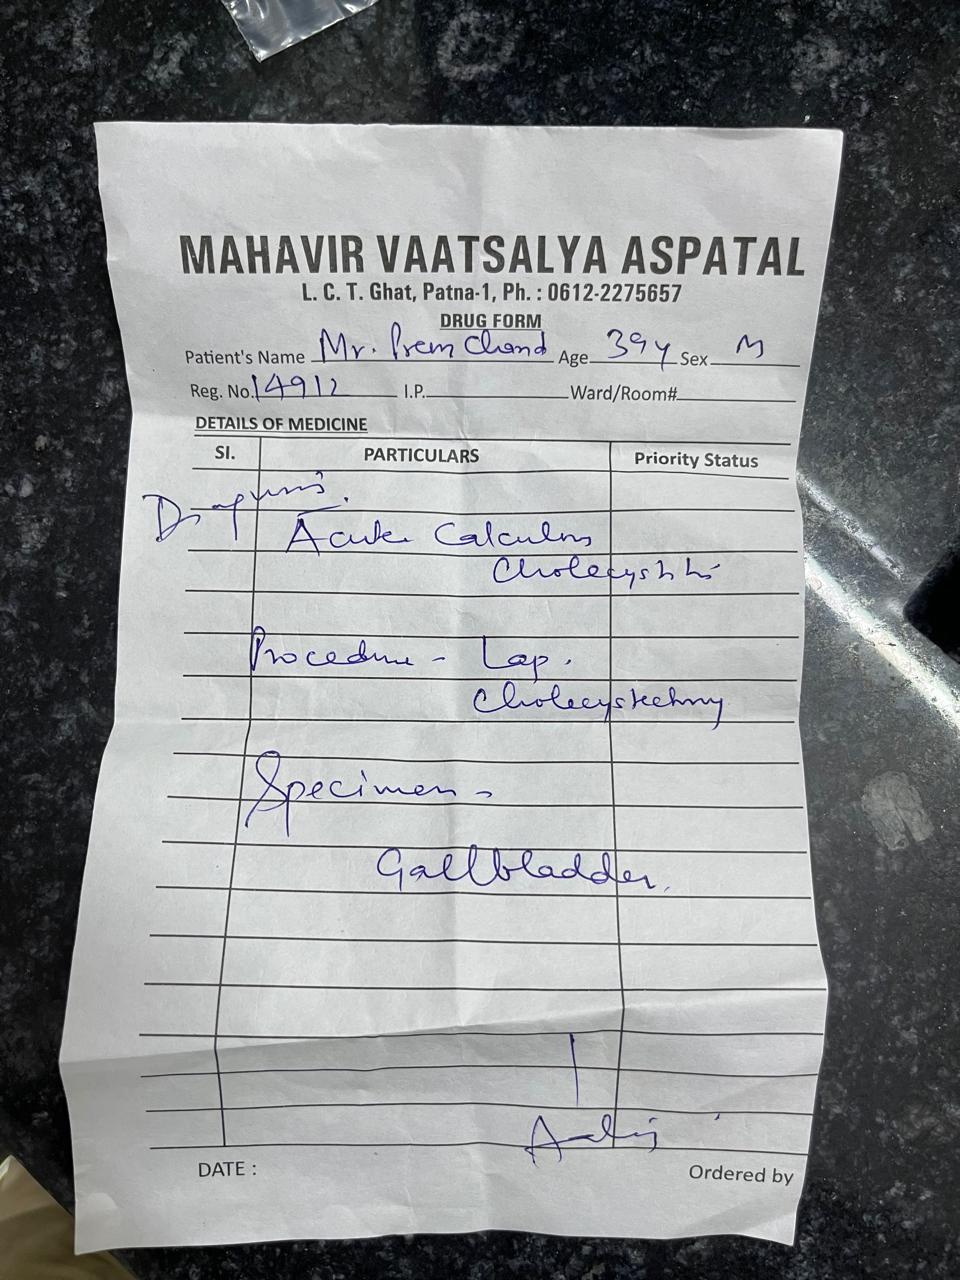 MAHAVIR VAATSALYA ASPATAL
L. C. T. Ghat, Patna-1, Ph. : 0612-2275657
DRUG FORM
Patient's Name Mr. Prem Chand Age 39y Sex M
Reg. No. 14912 I.P. Ward/Room#
DETAILS OF MEDICINE
SI. PARTICULARS Priority Status
Acute Calculous
Cholecystitis
Procedure - Lap.
Cholecystectomy
Specimen -
Gallbladder.
DATE : Ordered by